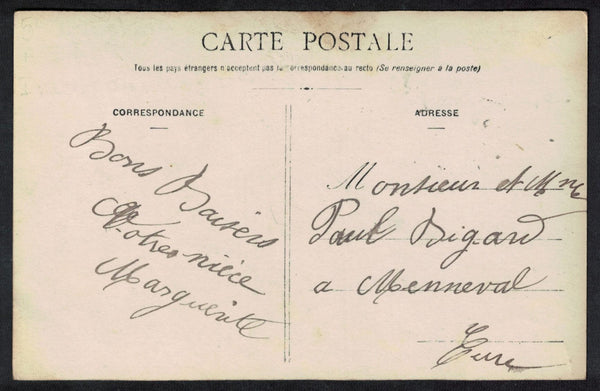 CARTE POSTALE
Tous les pays étrangers n'acceptent pas la correspondance au recto (Se renseigner à la poste)
CORRESPONDANCE
Bons Baisers
Votre nièce
Marguerite
ADRESSE
Monsieur et Mme
Paul Bigard
a Menneval
Eure